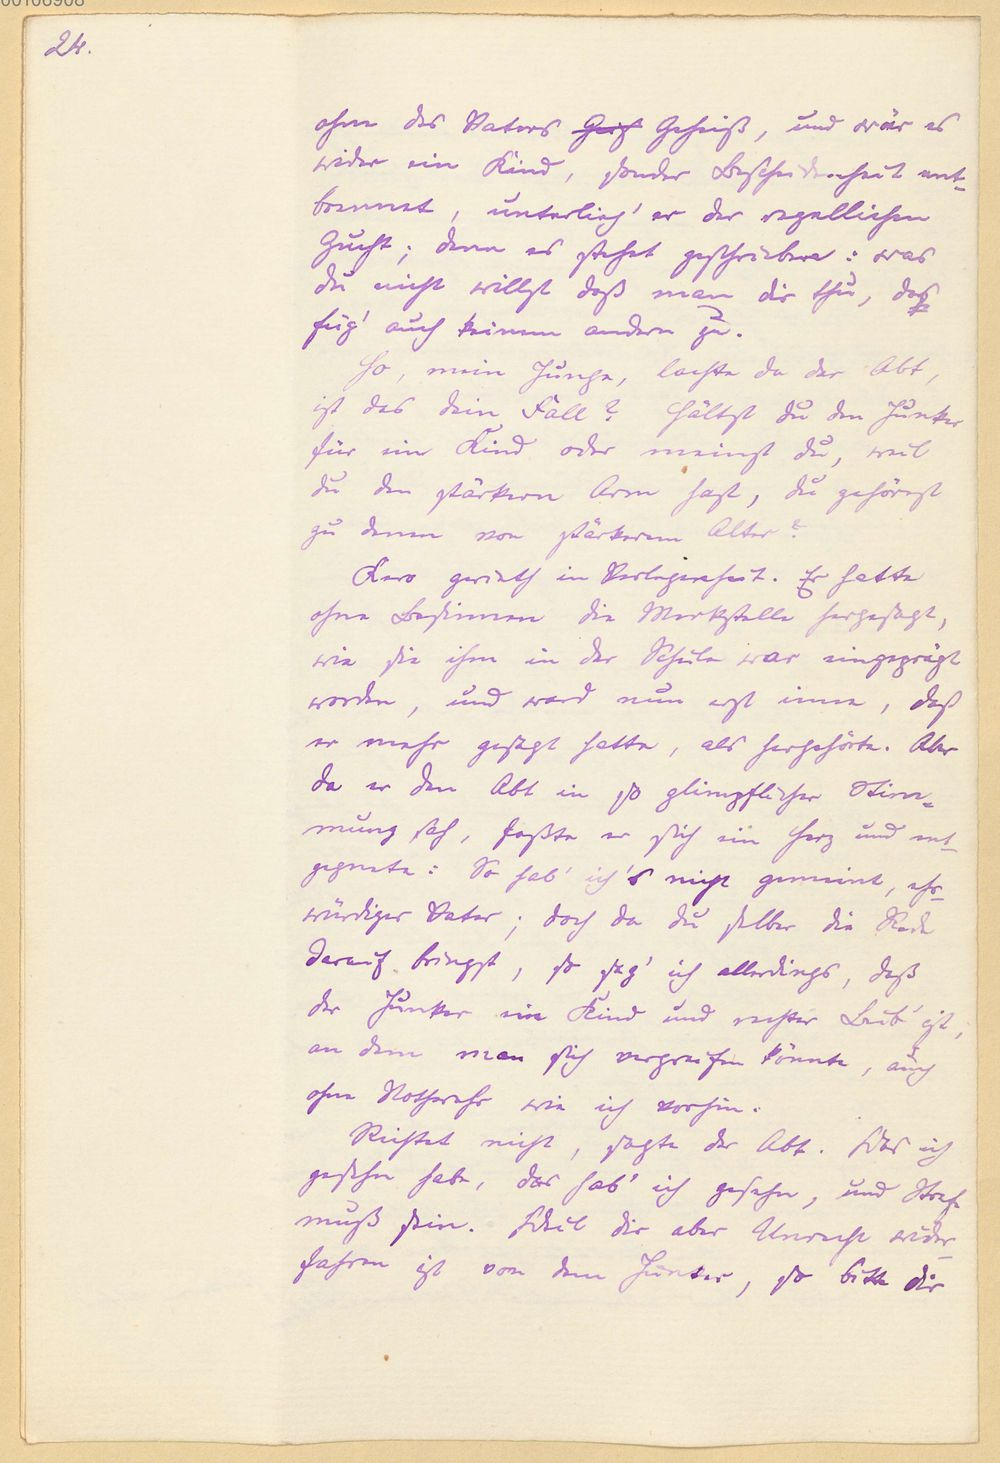 00106908
24.
ohne des Vaters Geiß Geheiß, und wär es
wider ein Kind, sonder Bescheidenheit ent-
brennet, unterlieg' er der regellichen
Zucht; denn es stehet geschrieben: was
du nicht willst daß man dir thu, das
füg' auch keinem andern zu.
Ho, mein Junge, lachte da der Abt,
ist das dein Fall? Hältst du den Junker
für ein Kind oder meinst du, weil
du den stärkern Arm hast, du gehörest
zu denen von stärkerem Alter?
Kero gerieth in Verlegenheit. Er hatte
ohne Besinnen die Merkstelle hergesagt,
wie sie ihm in der Schule war eingeprägt
worden, und ward nun erst inne, daß
er mehr gesagt hatte, als hergehörte. Aber
da er den Abt in so glimpflicher Stim-
mung sah, faßte er sich ein Herz und ent-
gegnete: So hab' ich's nicht gemeint, ehr-
würdiger Vater; doch da du selber die Rede
darauf bringst, so sag' ich allerdings, daß
der Junker ein Kind und rechter Bub' ist,
an dem man sich vergreifen könnte, auch
ohne Nothwehr wie ich vorhin.
Richtet nicht, sagte der Abt. Was ich
gesehn habe, das hab' ich gesehn, und Strafe
muß sein. Weil dir aber Unrecht wider-
fahren ist von dem Junker, so bitte dir